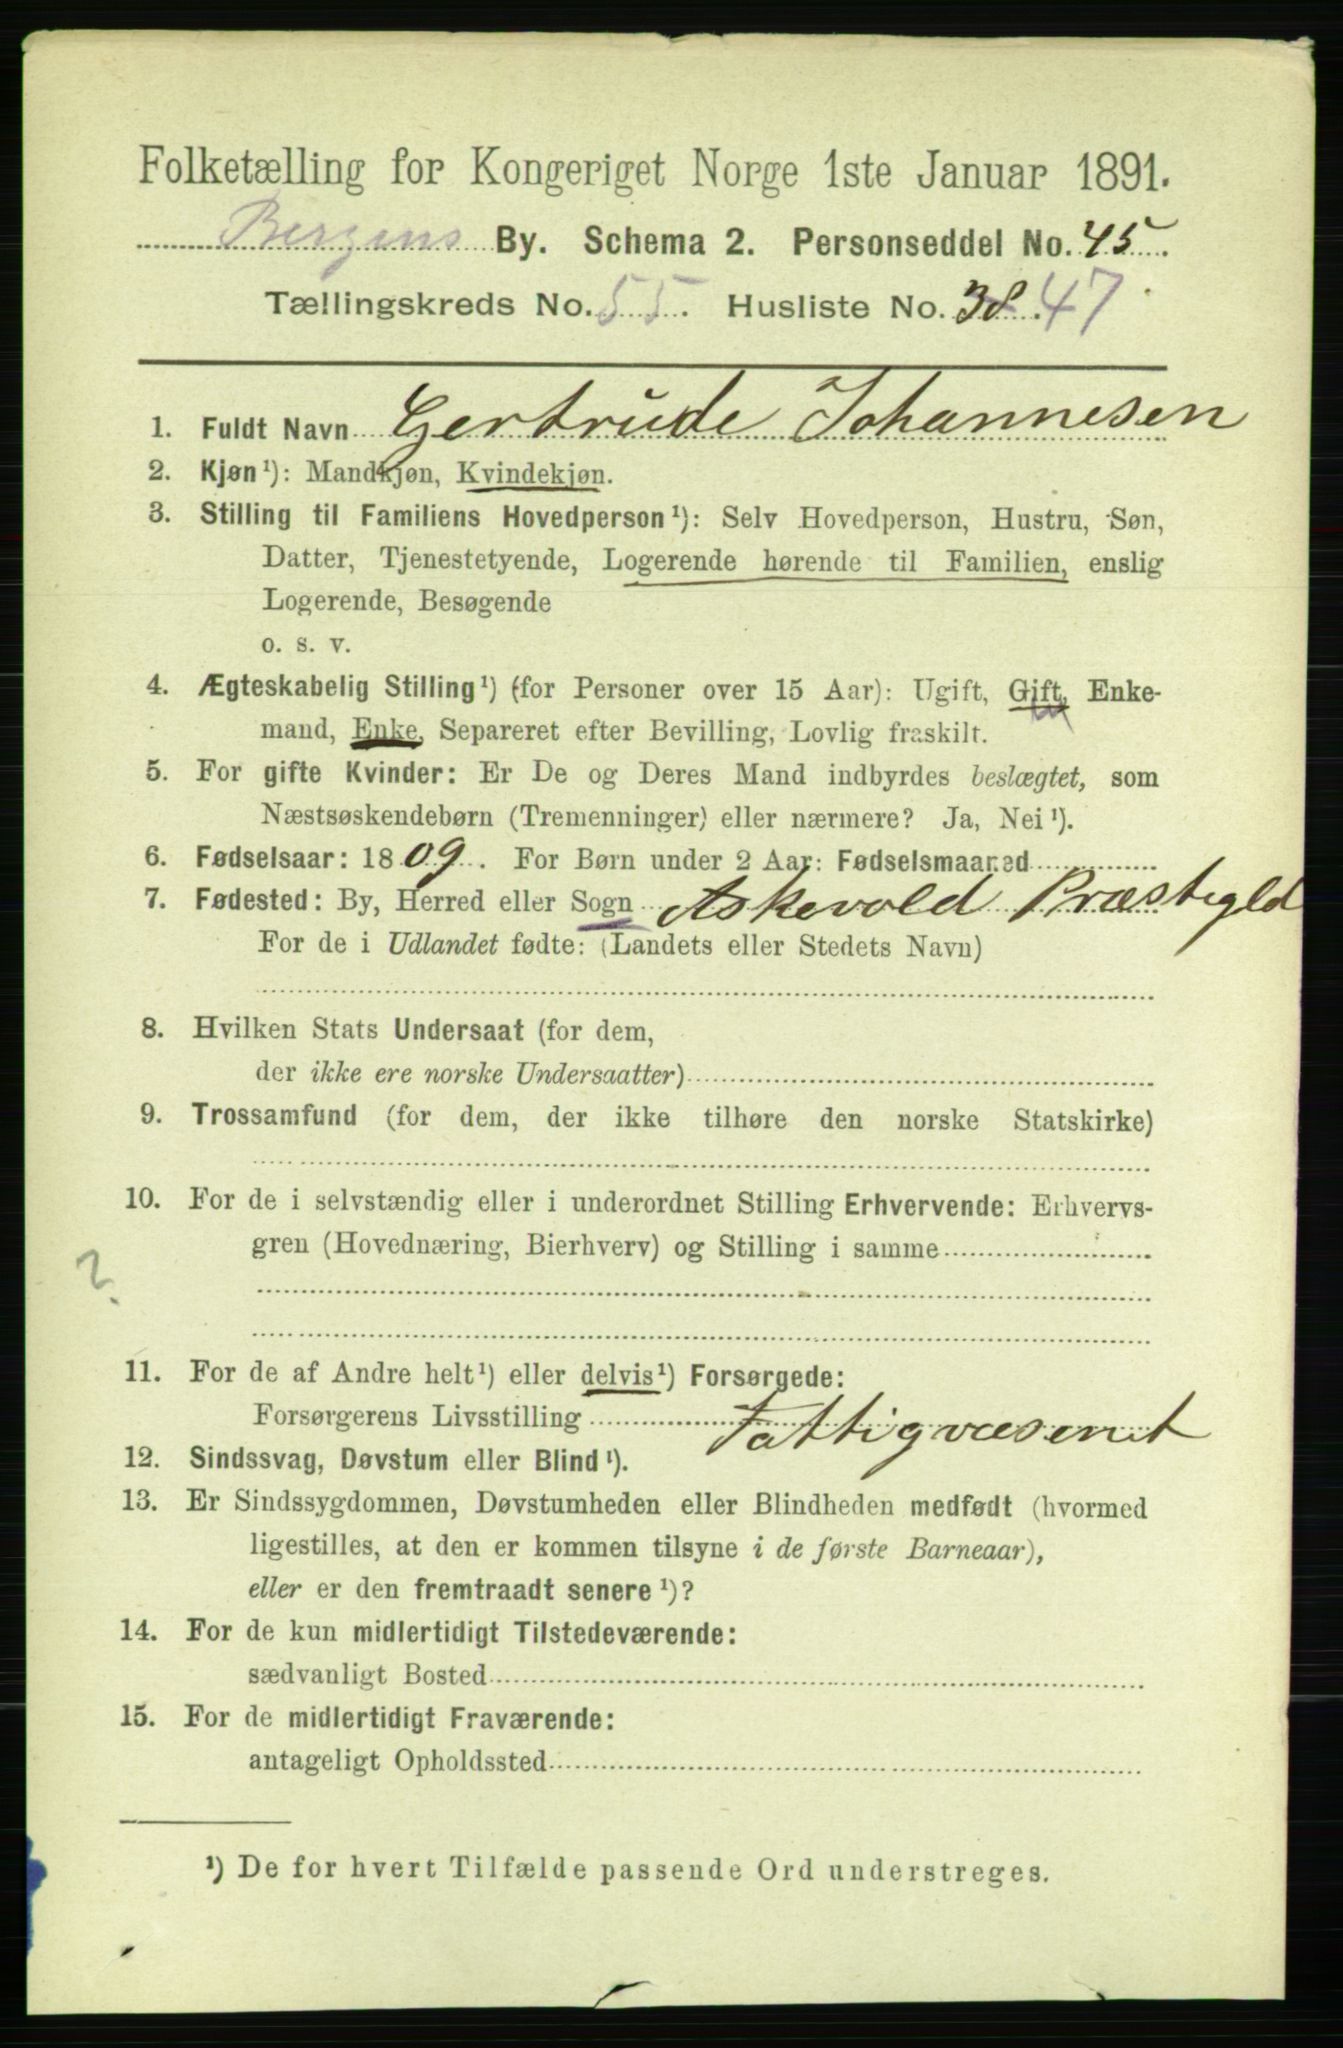 Folketælling for Kongeriget Norge 1ste Januar 1891.
Bergens By. Schema 2. Personseddel No. 45.
Tællingskreds No. 55. Husliste No. 38. 47
1. Fuldt Navn Gertrude Johannesen
2. Kjøn¹): Mandkjøn, Kvindekjøn.
3. Stilling til Familiens Hovedperson¹): Selv Hovedperson, Hustru, Søn,
Datter, Tjenestetyende, Logerende hørende til Familien, enslig
Logerende, Besøgende
o. s. v.
4. Ægteskabelig Stilling¹) (for Personer over 15 Aar): Ugift, Gift, Enke-
mand, Enke, Separeret efter Bevilling, Lovlig fraskilt.
5. For gifte Kvinder: Er De og Deres Mand indbyrdes beslægtet, som
Næstsøskendebørn (Tremenninger) eller nærmere? Ja, Nei¹).
6. Fødselsaar: 1809. For Børn under 2 Aar: Fødselsmaaned
7. Fødested: By, Herred eller Sogn Askevold Præstegld
For de i Udlandet fødte: (Landets eller Stedets Navn)
8. Hvilken Stats Undersaat (for dem,
der ikke ere norske Undersaatter)
9. Trossamfund (for dem, der ikke tilhøre den norske Statskirke)
10. For de i selvstændig eller i underordnet Stilling Erhvervende: Erhvervs-
gren (Hovednæring, Bierhverv) og Stilling i samme
?
11. For de af Andre helt¹) eller delvis¹) Forsørgede:
Forsørgerens Livsstilling Fattigvæsenet
12. Sindssvag, Døvstum eller Blind¹).
13. Er Sindssygdommen, Døvstumheden eller Blindheden medfødt (hvormed
ligestilles, at den er kommen tilsyne i de første Barneaar),
eller er den fremtraadt senere¹)?
14. For de kun midlertidigt Tilstedeværende:
sædvanligt Bosted
15. For de midlertidigt Fraværende:
antageligt Opholdssted
¹) De for hvert Tilfælde passende Ord understreges.